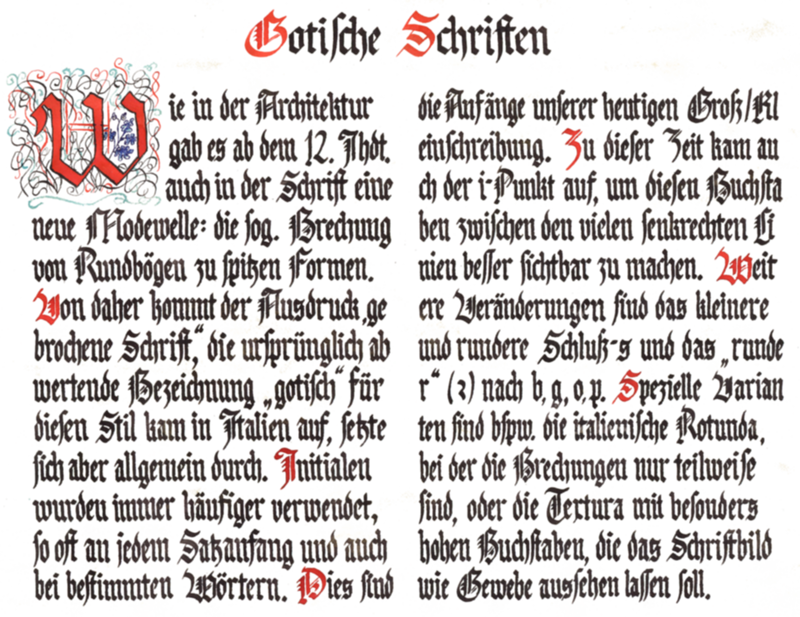 Gotische Schriften
Wie in der Architektur
gab es ab dem 12. Jhdt.
auch in der Schrift eine
neue Modewelle: die sog. Brechung
von Rundbögen zu spitzen Formen.
Von daher kommt der Ausdruck „ge
brochene Schrift“, die ursprünglich ab
wertende Bezeichnung „gotisch“ für
diesen Stil kam in Italien auf, setzte
sich aber allgemein durch. Initialen
wurden immer häufiger verwendet,
so oft an jedem Satzanfang und auch
bei bestimmten Wörtern. Dies sind
die Anfänge unserer heutigen Groß/Kl
einschreibung. Zu dieser Zeit kam au
ch der i-Punkt auf, um diesen Buchsta
ben zwischen den vielen senkrechten Li
nien besser sichtbar zu machen. Weit
ere Veränderungen sind das kleinere
und rundere Schluß-s und das „runde
r“ (ꝛ) nach b, g, o, p. Spezielle Varian
ten sind bspw. die italienische Rotunda,
bei der die Brechungen nur teilweise
sind, oder die Textura mit besonders
hohen Buchstaben, die das Schriftbild
wie Gewebe aussehen lassen soll.